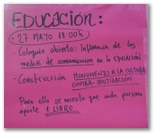 EDUCACIÓN:
· 27 MAYO 18:00h
· Coloquio abierto: Influencia de los
medios de comunicación en la EDUCACIÓN
- CONSTRUCCIÓN MONUMENTO A LA CULTURA
CONTRA-
Para ello se necesita que cada persona
aporte 1 LIBRO.